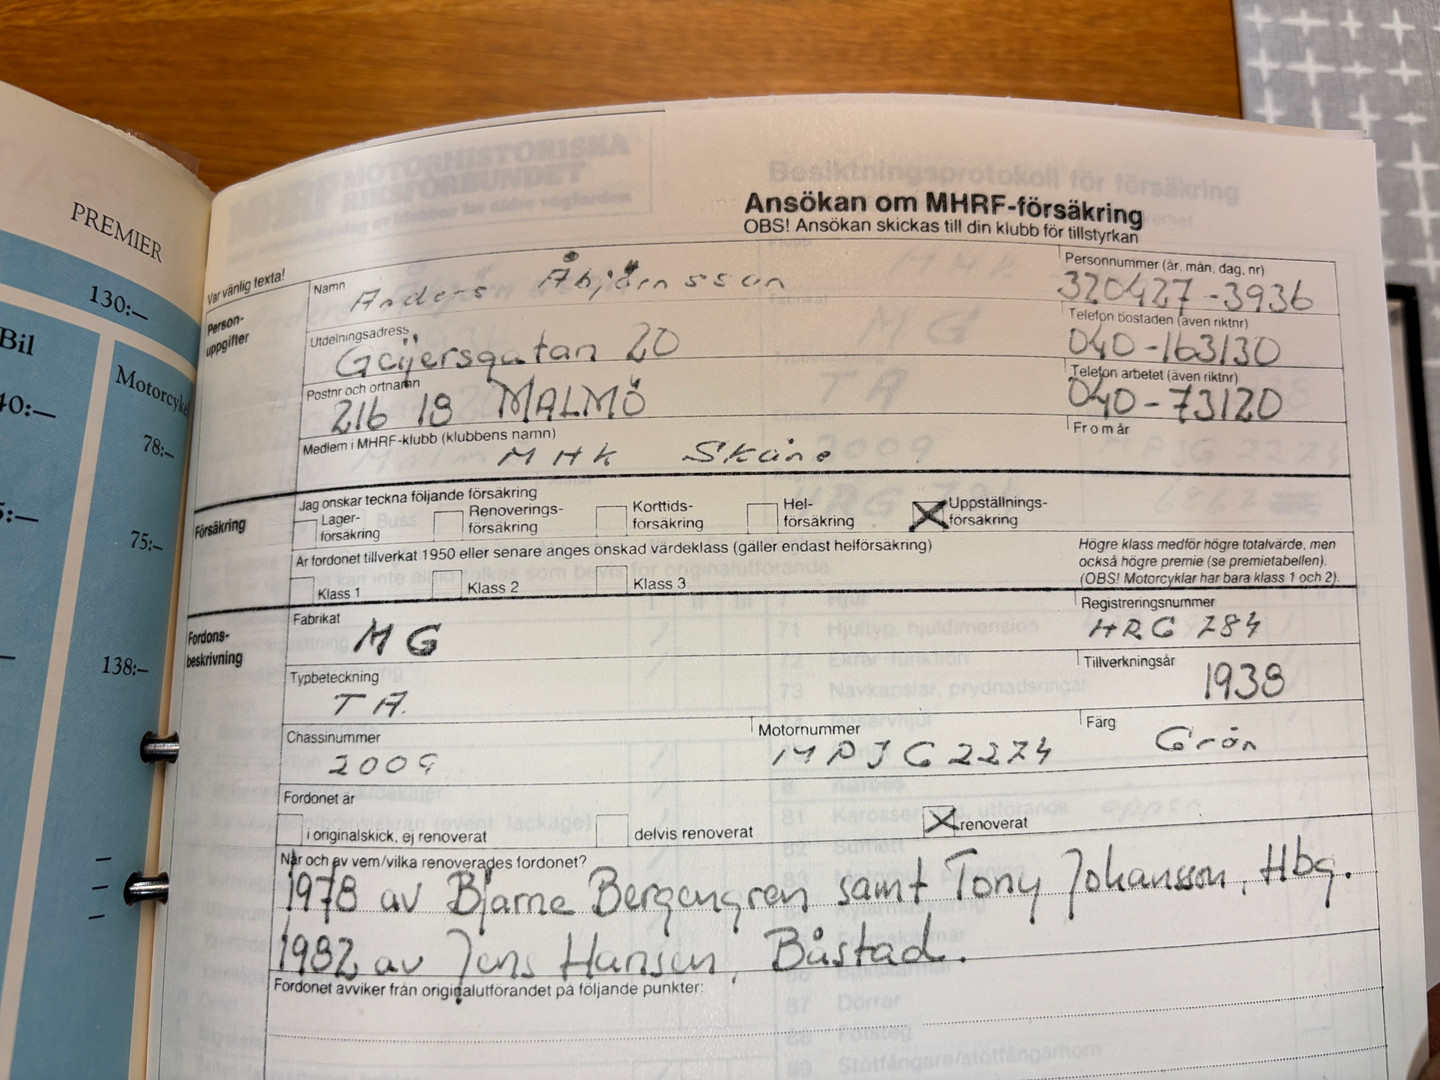 PREMIER
130:—
Bil
Motorcyke
40:—
78:—
5:—
75:—
138:—
MOTORHISTORISKA
RIKSFÖRBUNDET
Besiktningsprotokoll för försäkring
Ansökan om MHRF-försäkring
OBS! Ansökan skickas till din klubb för tillstyrkan
Var vänlig texta!
Person-
uppgifter
Namn
Anders Åbjörnsson
Personnummer (år, mån, dag, nr)
320427-3936
Utdelningsadress
Geijersgatan 20
Telefon bostaden (även riktnr)
040-163130
Postnr och ortnamn
216 18 MALMÖ
Telefon arbetet (även riktnr)
040-73120
Medlem i MHRF-klubb (klubbens namn)
MHK Skåne
Fr o m år
Försäkring
Jag önskar teckna följande försäkring
Lager-
försäkring
Renoverings-
försäkring
Korttids-
försäkring
Hel-
försäkring
Uppställnings-
försäkring
Är fordonet tillverkat 1950 eller senare anges önskad värdeklass (gäller endast helförsäkring)
Klass 1
Klass 2
Klass 3
Högre klass medför högre totalvärde, men
också högre premie (se premietabellen).
(OBS! Motorcyklar har bara klass 1 och 2).
Fordons-
beskrivning
Fabrikat
MG
Registreringsnummer
HRG 784
Typbeteckning
TA.
Tillverkningsår
1938
Chassinummer
2009
Motornummer
MPJG2274
Färg
Grön
Fordonet är
i originalskick, ej renoverat
delvis renoverat
renoverat
När och av vem/vilka renoverades fordonet?
1978 av Bjarne Bergengren samt Tony Johansson, Hbg.
1982 av Jens Hansen, Båstad.
Fordonet avviker från originalutförandet på följande punkter: